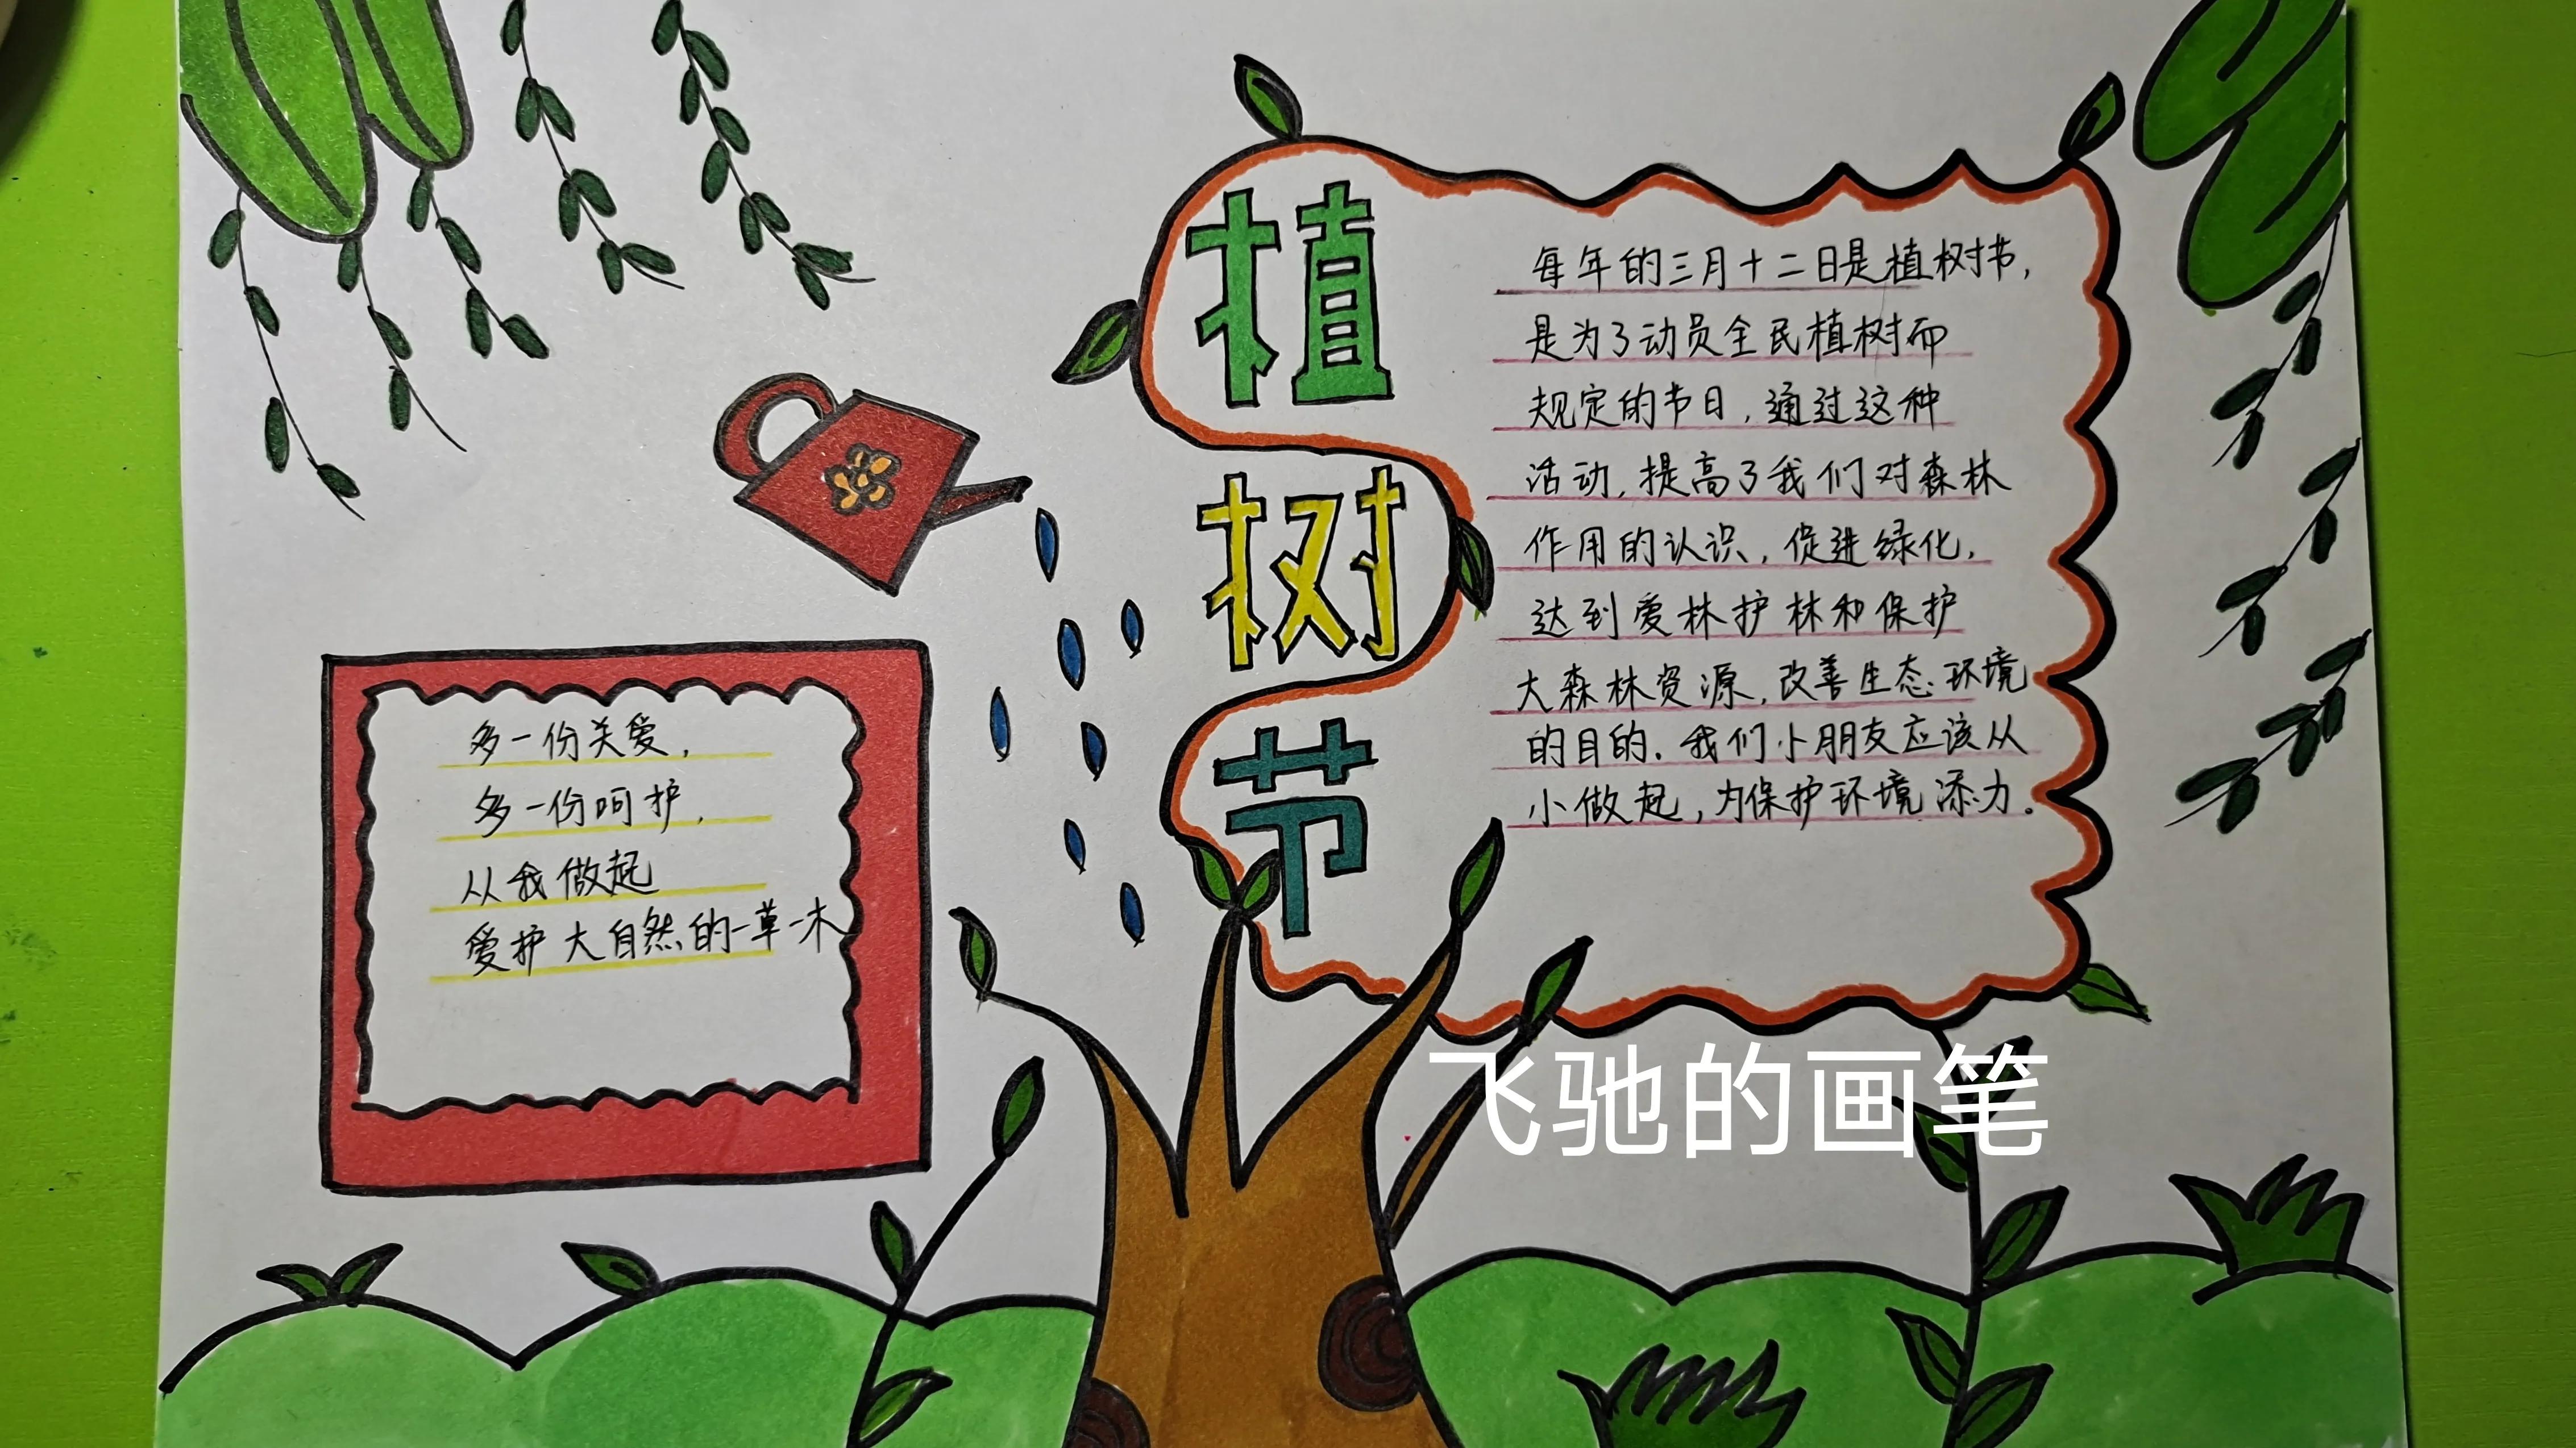 植
树
节
每年的三月十二日是植树节,
是为了动员全民植树而
规定的节日,通过这种
活动,提高了我们对森林
作用的认识,促进绿化,
达到爱林护林和保护
大森林资源,改善生态环境
的目的.我们小朋友应该从
小做起,为保护环境添力。
多一份关爱,
多一份呵护,
从我做起
爱护大自然的一草一木
飞驰的画笔